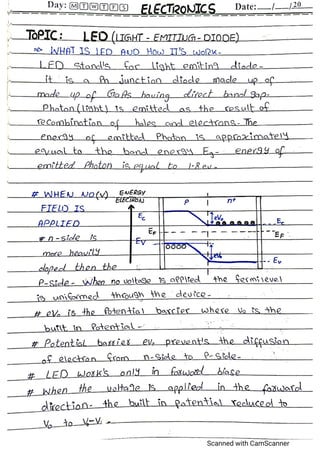 Day: M T W T F S ELECTRONICS Date: __/__/20
TOPIC: LED (LIGHT - EMITTING - DIODE)
=> WHAT IS LED AND HOW IT'S WORK-
LED Stand's for light emiting diode-
it is a Pn junction diode made up of
made up of GaAs having direct band gap-
Photon (light) is emitted as the result of
recombination of holes and electrons. The
energy of emitted Photon is approximately
equal to the band energy Eg- energy of
emitted Photon is equal to 1.8ev-
# WHEN NO(V)
FIELD IS
APPLIED
ENERGY
ELECTRON
P n+
Ec eVo Ec
EF EF
EV eVo Ev
* n-side is
more heavily
doped then the
P-side- When no voltage is applied the fermilevel
is uniformed through the device-
# eVo is the Potential barrier where Vo is the
built in Potential-
# Potential barrier eVo prevent's the diffusion
of electron from n-side to P-side-
# LED Work's only in forword biase
# When the voltage is applied in the forward
direction- the built in Potential reduced to
Vo to Vo-V.
Scanned with CamScanner